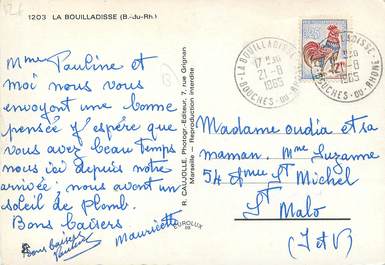 1203 LA BOUILLADISSE (B.-du-Rh.)
Mme Pauline et
moi nous vous
envoyont une bonne
pensée J'espère que
vous avez beau temps
nous ici depuis notre
arrivée, nous avont un
soleil de plomb.
Bons baisers
Mauricette
Bons baisers
Pauline
R. CAUJOLLE, Photogr.-Editeur, 7, rue Grignan
Marseille - Reproduction interdite
LA BOUILLADISSE
17 H30
21-8
1965
BOUCHES-DU-RHONE
Madame oudia et sa
maman. Mme Suzanne
54 St Michel
St Malo
(I et V)